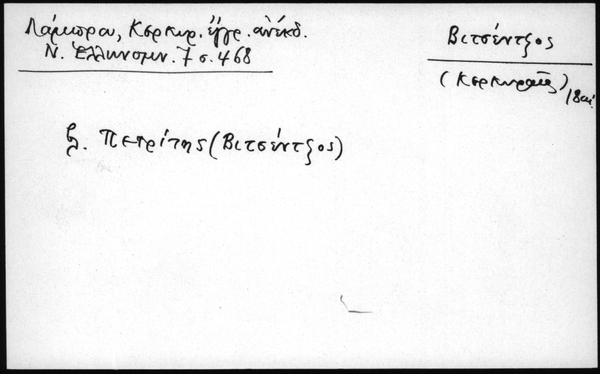 Λάμπρου, Κερκυρ. ἔγγρ. ἀνέκδ.
Ν. Ἑλληνομν. 7 σ. 468
Βιτσέντζος
(Κερκυραῖος) 18 αἰ.
β. Πετρίτης (Βιτσέντζος)